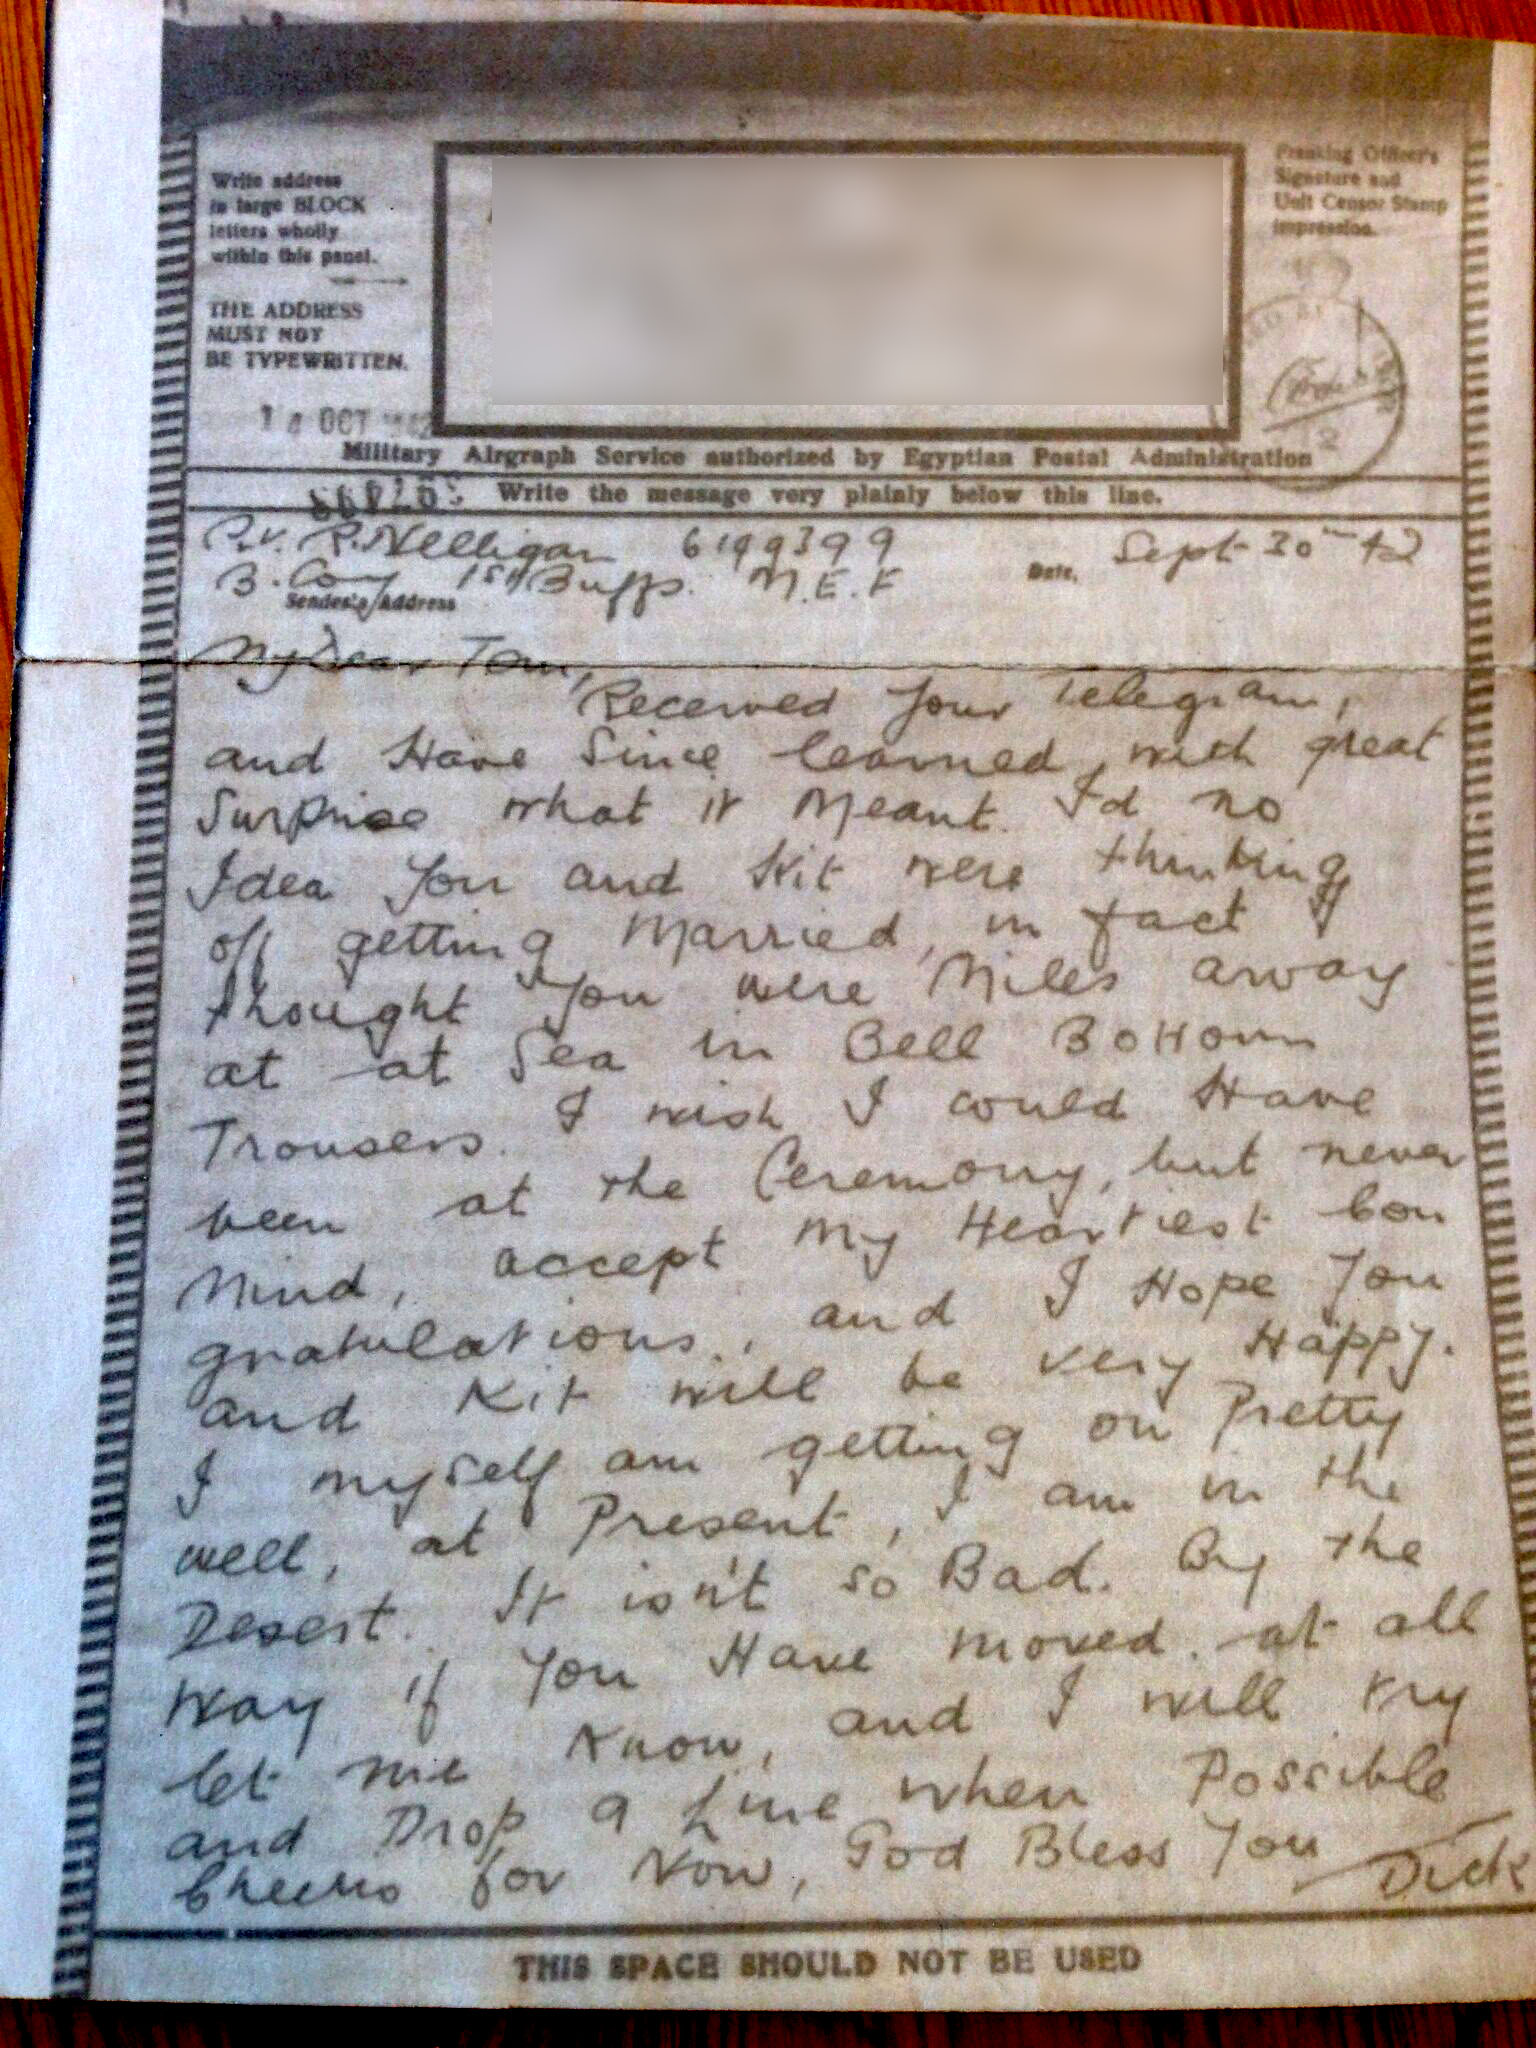 Write address
in large BLOCK
letters wholly
within this panel.
THE ADDRESS
MUST NOT
BE TYPEWRITTEN.
Franking Officer's
Signature and
Unit Censor Stamp
impression.
OCT
Military Airgraph Service authorized by Egyptian Postal Administration
Write the message very plainly below this line.
R. Nelligan 6199399
B. Coy 1st Buffs. M.E.F
Sender's Address
Date, Sept 30th 42
My Dear Tom,
Received Your Telegram,
and Have Since learned, with great
Surprise what it Meant. I'd no
Idea You and Kit were thinking
off getting Married, in fact I
thought You were Miles away
at at Sea in Bell Bottom
Trousers. I wish I could Have
been at the Ceremony, but never
Mind, accept My Heartiest Con
gratulations, and I Hope You
and Kit will be very Happy.
I myself am getting on Pretty
well, at Present, I am in the
Desert. It isn't so Bad. By the
Way if You Have moved at all
let me know, and I will try
and Drop a Line when Possible
Cheerio for Now, God Bless You
Dick
THIS SPACE SHOULD NOT BE USED